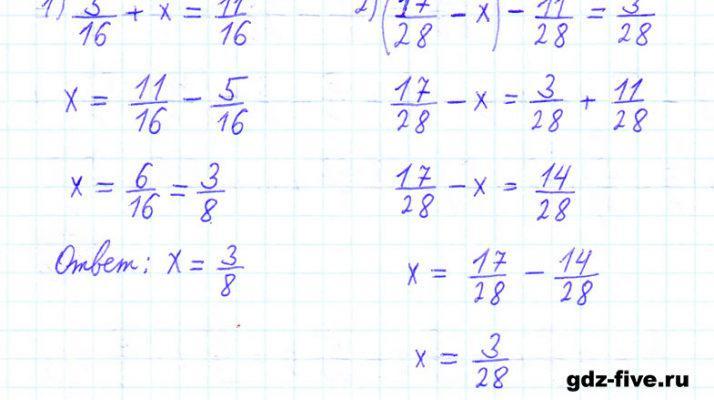 1) 5/16 + x = 11/16
x = 11/16 - 5/16
x = 6/16 = 3/8
Ответ: x = 3/8
2) (17/28 - x) - 11/28 = 3/28
17/28 - x = 3/28 + 11/28
17/28 - x = 14/28
x = 17/28 - 14/28
x = 3/28
gdz-five.ru